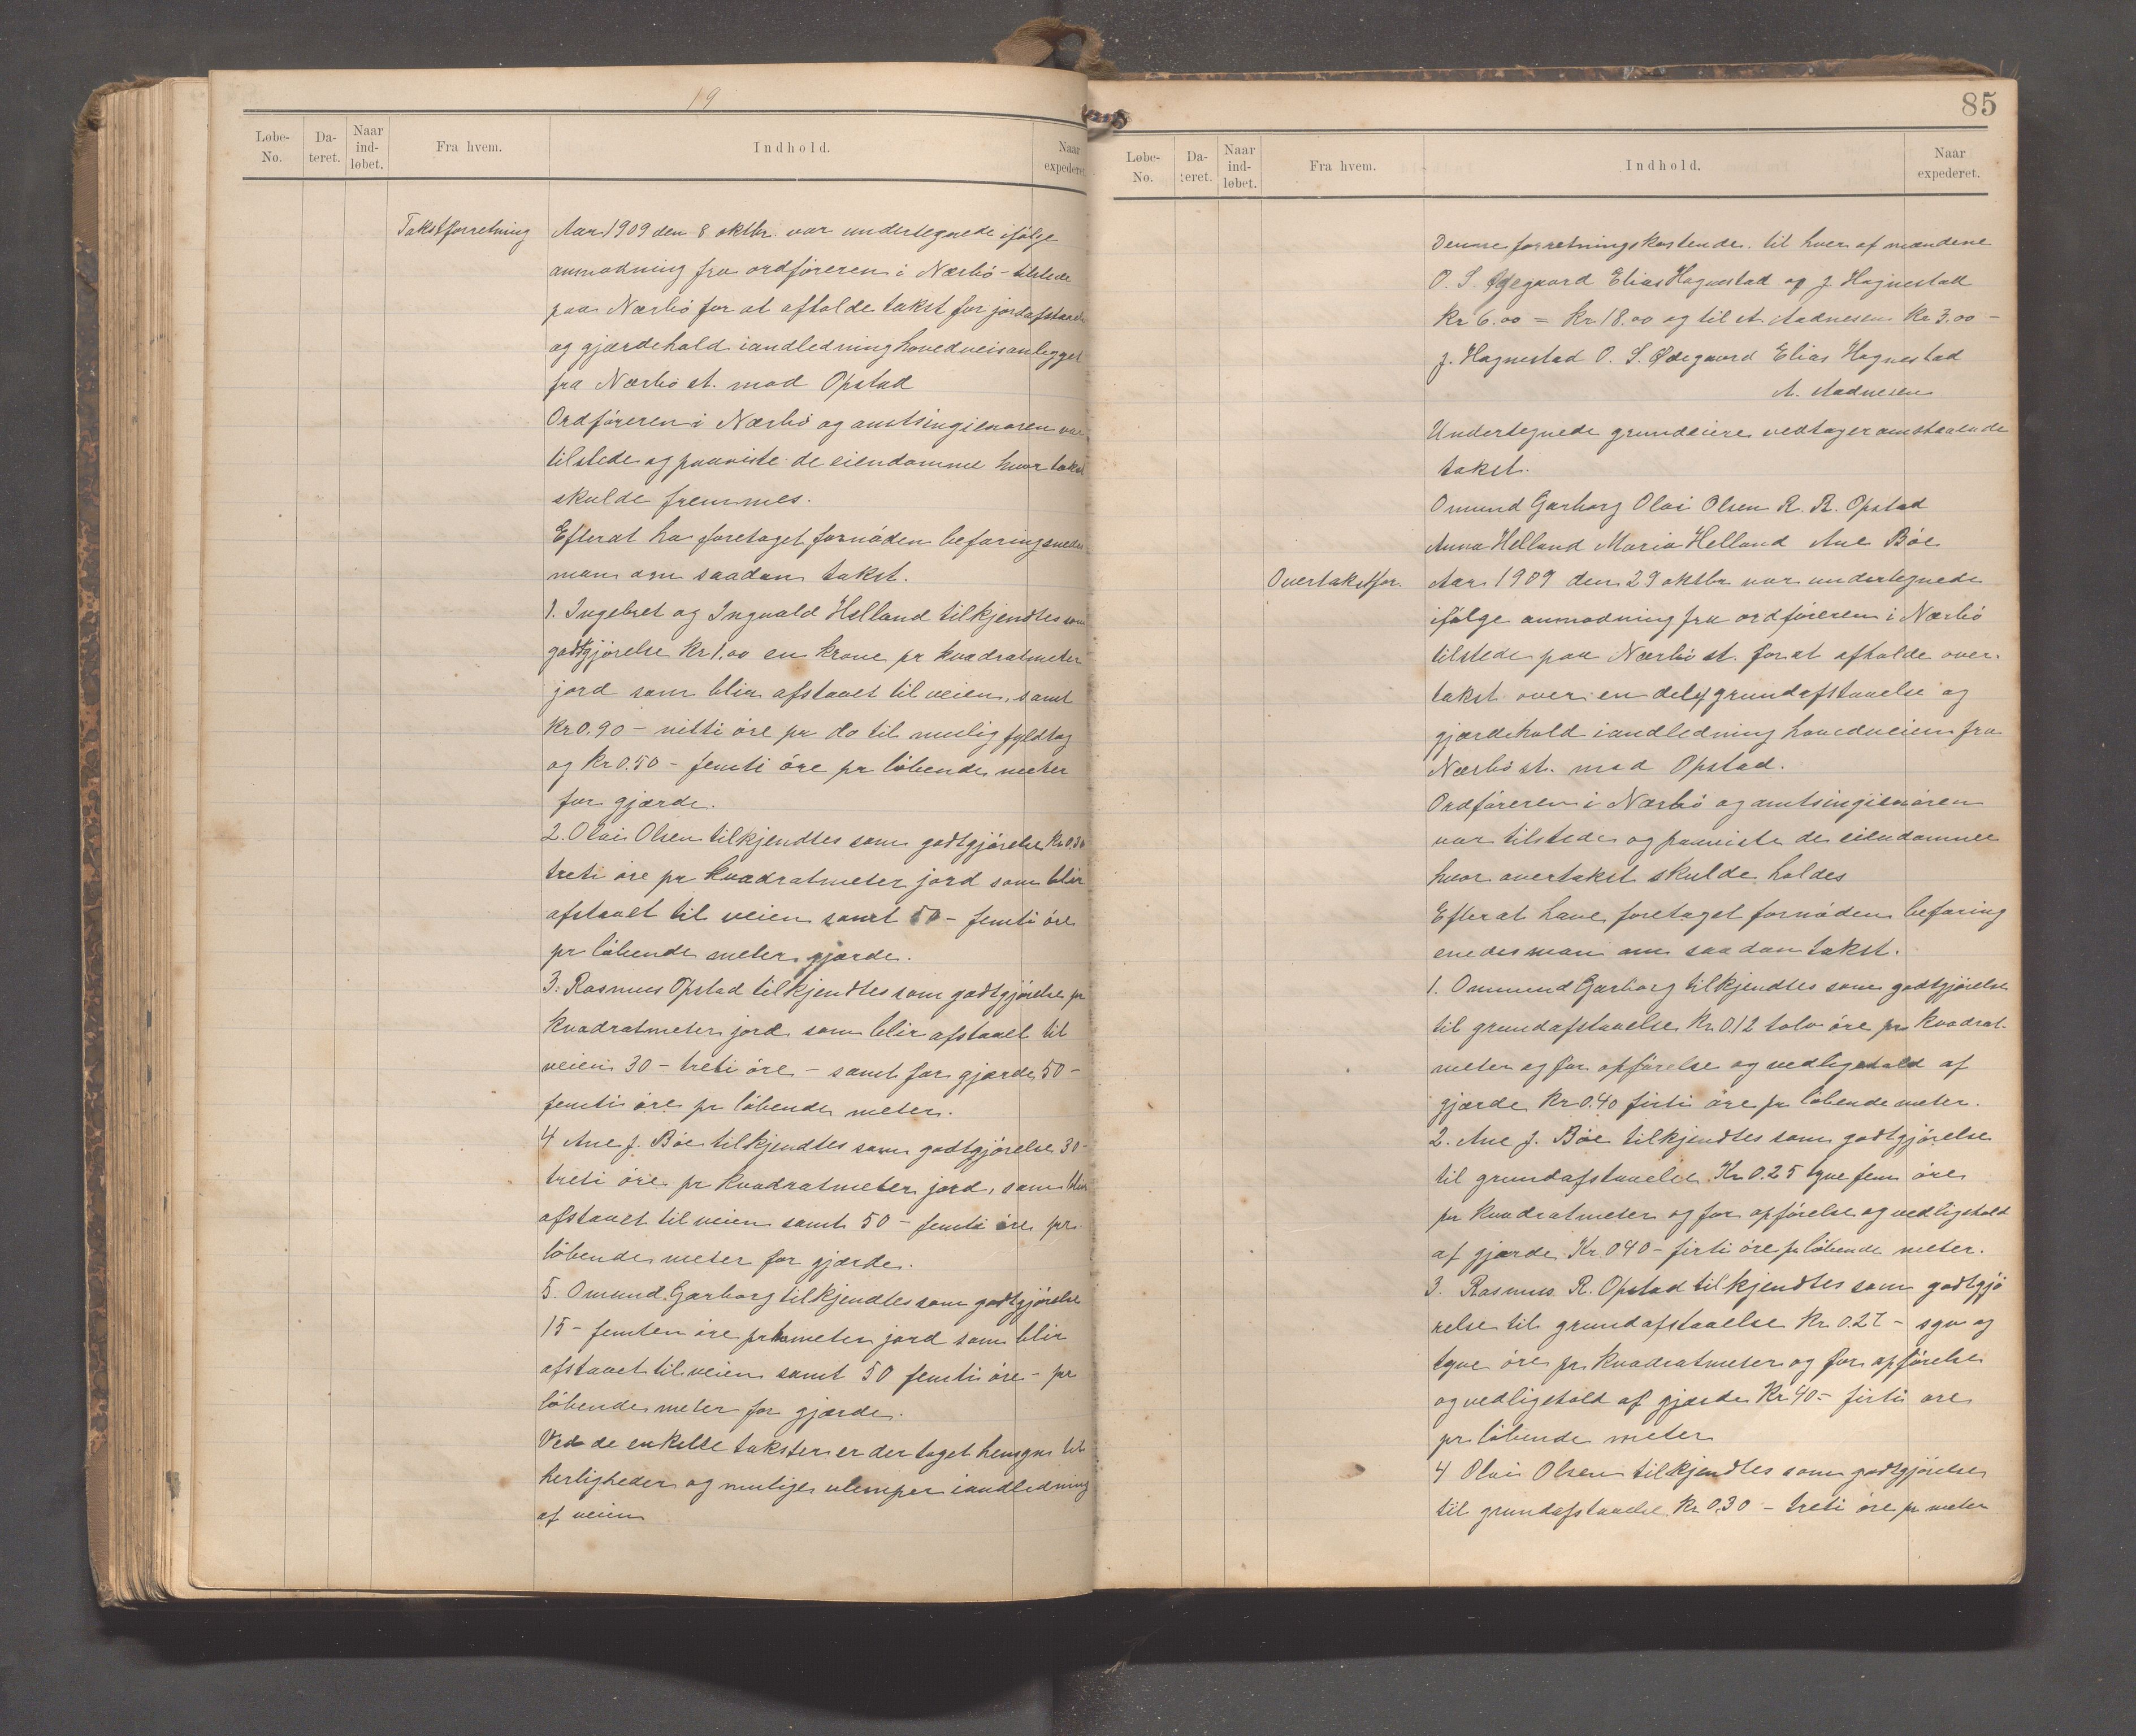 19
Løbe-No. Da-teret. Naar ind-løbet. Fra hvem. Indhold. Naar expederet
Takstforretning Aar 1909 den 8 oktbr. var undertegnede ifölge
anmodning fra ordföreren i Nærbö - tilstede
paa Nærbö for at afholde takst for jordafstaaelse
og gjærdehold iandledning hovedveisanlegget
fra Nærbö st. mod Opstad
Ordföreren i Nærbö og amtsingieniören var
tilstede og paaviste de eiendomme hvor takst
skulde fremmes.
Efterat ha foretaget fornöden befaring enedes
man om saadan takst.
1. Ingebret og Ingvald Helland tilkjendtes som
godtgjörelse Kr 1.00 en krone pr kvadratmeter
jord som blir afstaaet til veien, samt
Kr 0.90 - nitti öre pr do til mulig fyldtag
og Kr 0.50 - femti öre pr löbende meter
for gjærde.
2. Olai Olsen tilkjendtes som godtgjörelse Kr 0.30
treti öre pr kvadratmeter jord som blir
afstaaet til veien samt 50 - femti öre
pr löbende meter gjærde.
3. Rasmus Opstad tilkjendtes som godtgjörelse pr
kvadratmeter jord som blir afstaaet til
veien 30 - treti öre - samt for gjærde 50 -
femti öre pr löbende meter.
4 Ane J. Böe tilkjendtes som godtgjörelse 30 -
treti öre pr kvadratmeter jord, som blir
afstaaet til veien samt 50 - femti öre pr.
löbende meter for gjærde.
5. Omund Garborg tilkjendtes som godtgjörelse
15 - femten öre pr kvmeter jord som blir
afstaaet til veien samt 50 femti öre - pr
löbende meter for gjærde.
Ved de enkelte takster er der taget hensyn til
herligheder og mulige ulemper iandledning
af veien
85
Løbe-No. Da-teret. Naar ind-løbet. Fra hvem. Indhold. Naar expederet.
Denne forretnings kostende til hver af mændene
O. S. Ødegaard Elias Hagnestad og J Hagnestad
Kr 6.00 = Kr 18.00 og til A. Aadnesen Kr 3.00 -
J. Hagnestad O. S. Ødegaard Elias Hagnestad
A. Aadnesen
Undertegnede grundeiere vedtager omstaaende
takst.
Omund Garborg Olai Olsen R. R. Opstad
Anna Helland Maria Helland Ane Böe
Overtakstfor. Aar 1909 den 29 oktbr var undertegnede
ifölge anmodning fra ordföreren i Nærbö
tilstede paa Nærbö st. for at afholde over-
takst over en del af grundafstaaelse og
gjærdehold iandledning hovedveien fra
Nærbö st. mod Opstad.
Ordföreren i Nærbö og amtsingieniören
var tilstede og paaviste de eiendomme
hvor overtakst skulde holdes
Efterat have foretaget fornöden befaring
enedes man om saadan takst.
1. Ommund Garborg tilkjendtes som godtgjörelse
til grundafstaaelse Kr 0.12 tolv öre pr kvadrat-
meter og for opförelse og vedligehold af
gjærde Kr 0.40 firti öre pr löbende meter.
2. Ane J. Böe tilkjendtes som godtgjörelse
til grundafstaaelse Kr 0.25 tyve fem öre
pr kvadratmeter og for opförelse og vedligehold
af gjærde Kr. 040 - firti öre pr löbende meter.
3. Rasmus R. Opstad tilkjendtes som godtgjö
relse til grundafstaaelse Kr 0.27 - syv og
tyve öre pr kvadratmeter og for opförelse
og vedligehold af gjærde Kr 40 - firti öre
pr löbende meter
4 Olai Olsen tilkjendtes som godtgjörelse
til grundafstaaelse Kr 0.30 - treti öre pr meter